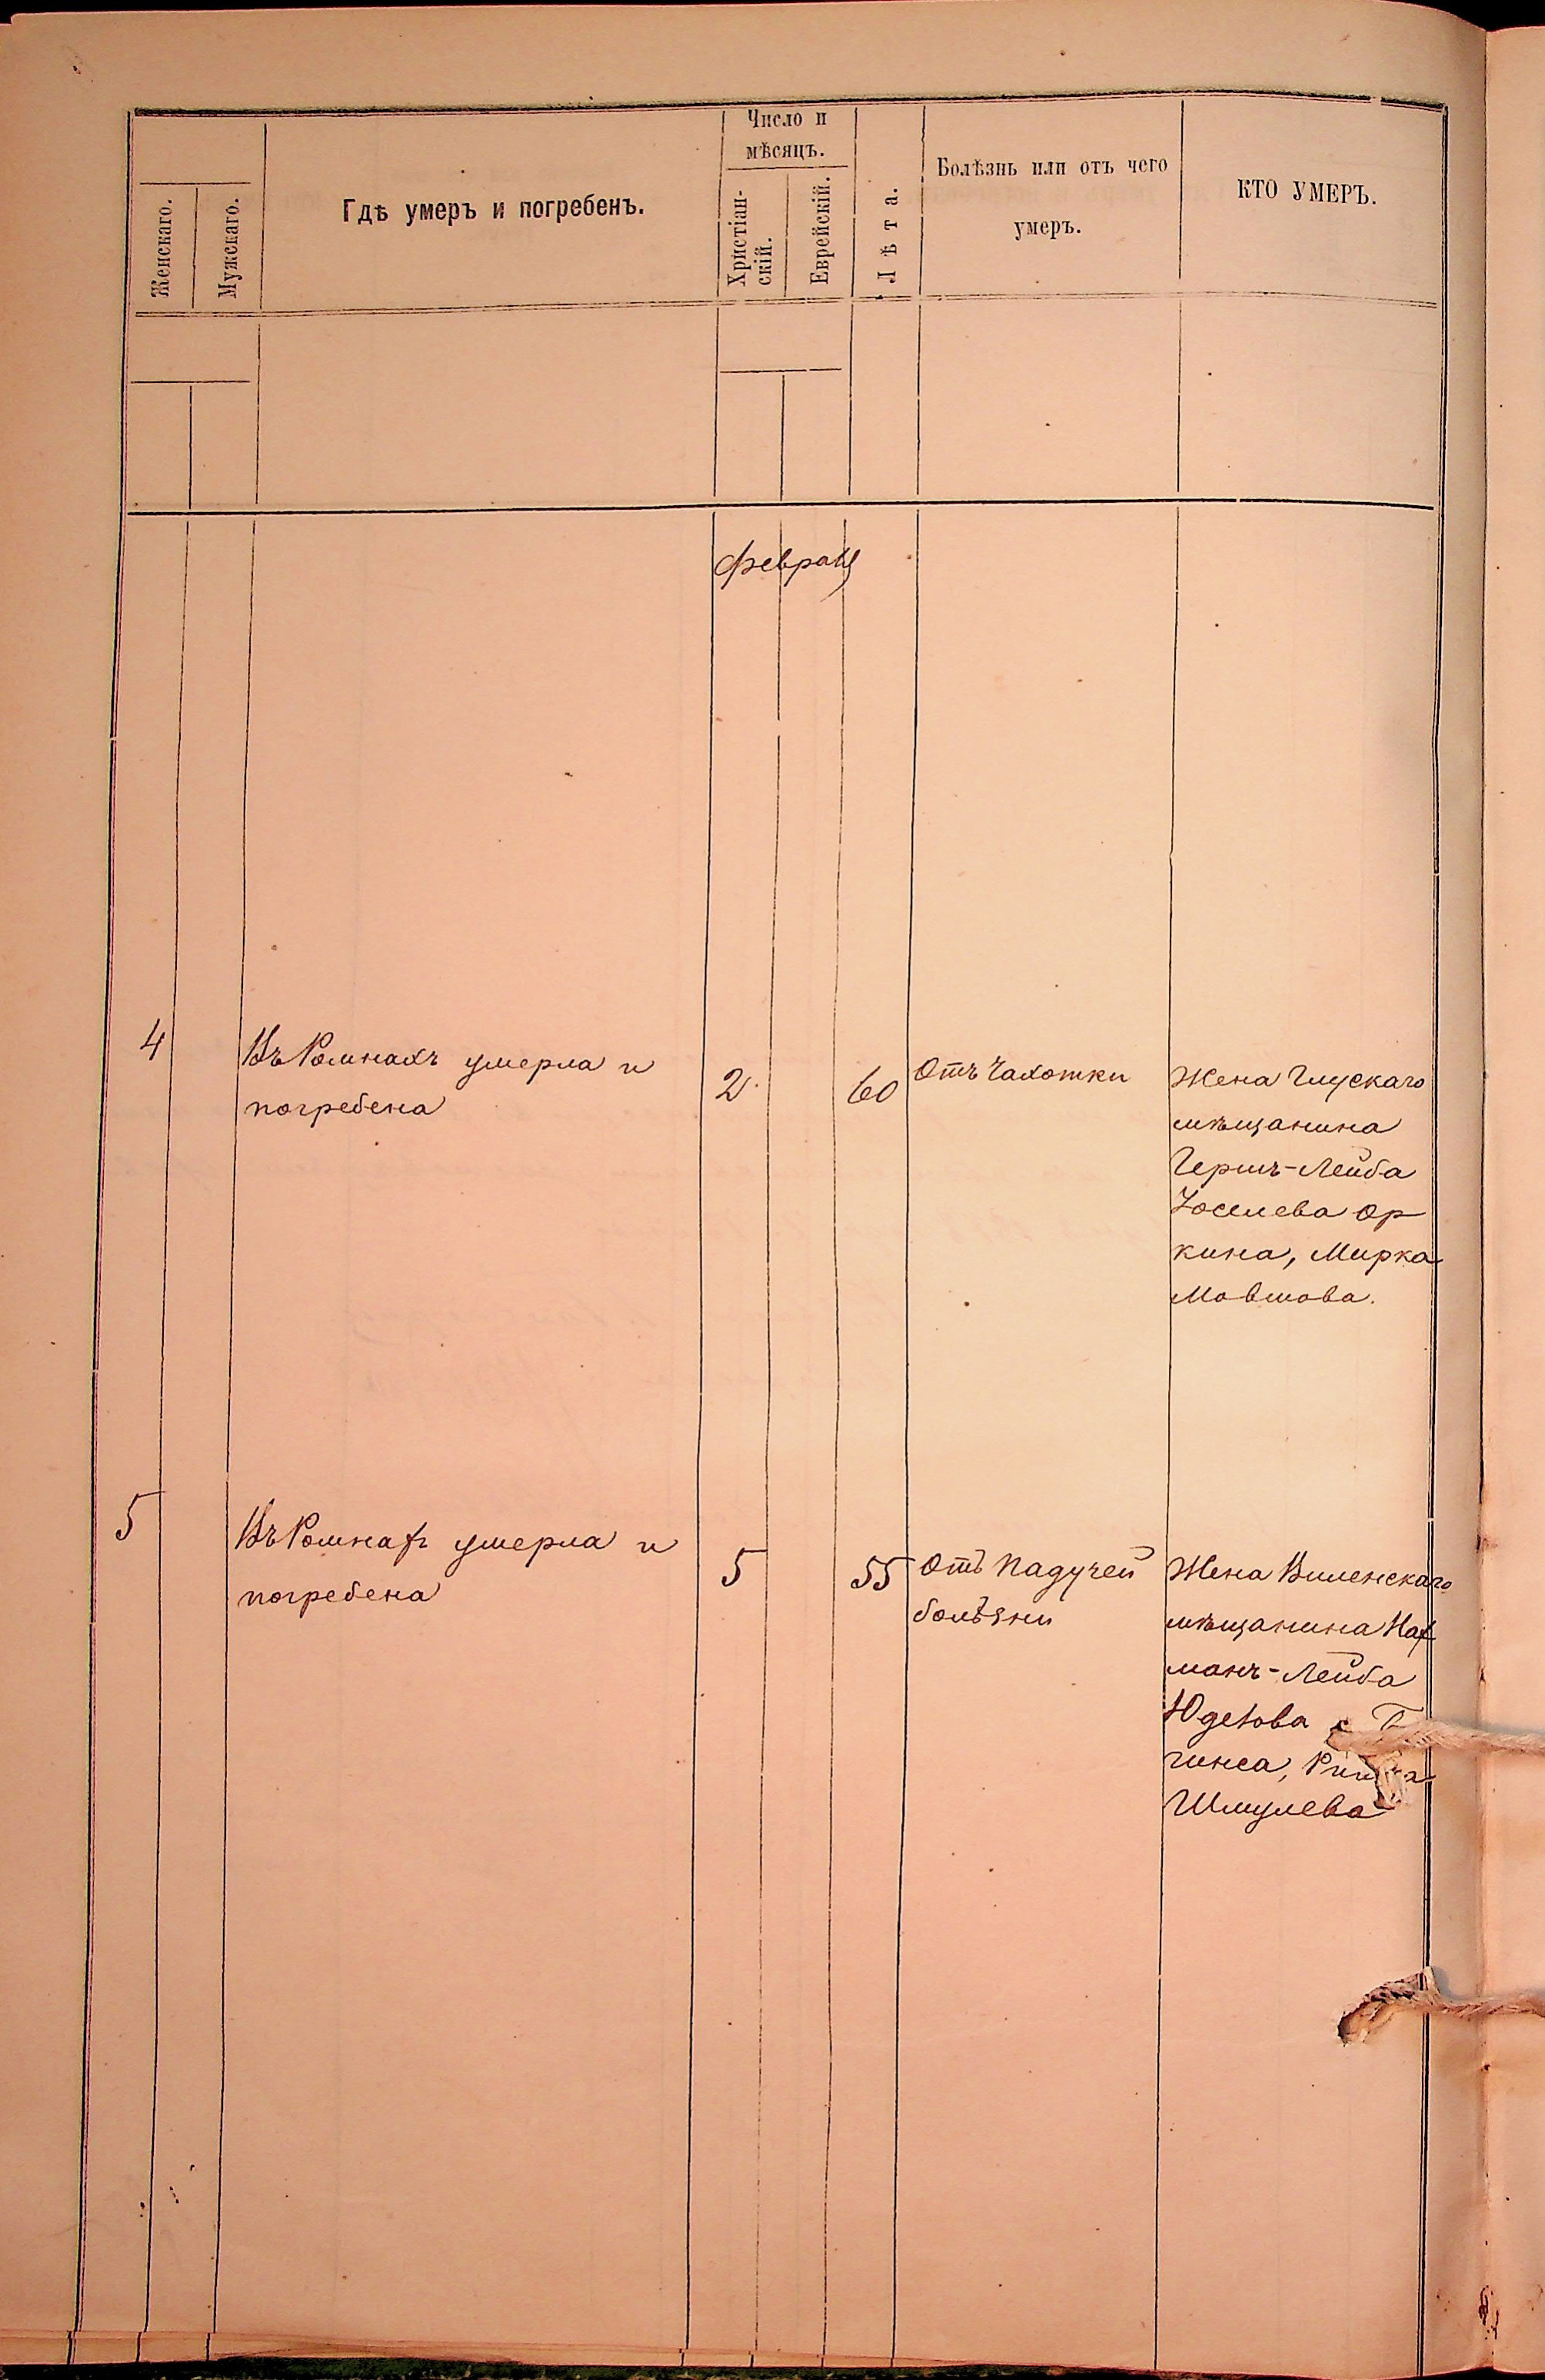 Число и
мѣсяцъ.
Женскаго.
Мужскаго.
Гдѣ умеръ и погребенъ.
Христіан-
скій.
Еврейскій.
Лѣта.
Болѣзнь или отъ чего
умеръ.
КТО УМЕРЪ.
февраля
4
Въ Ромнахъ умерла и
погребена
2
60
Отъ чахотки
Жена Глускаго
мѣщанина
Гершъ-Лейба
Іоселева Ор
кина, Мирка
Мовшова.
5
Въ Ромнахъ умерла и
погребена
5
55
Отъ падучей
болѣзни
Жена Виленскаго
мѣщанина Нах
манъ-Лейба
Юделова
гинса,
Шмулева